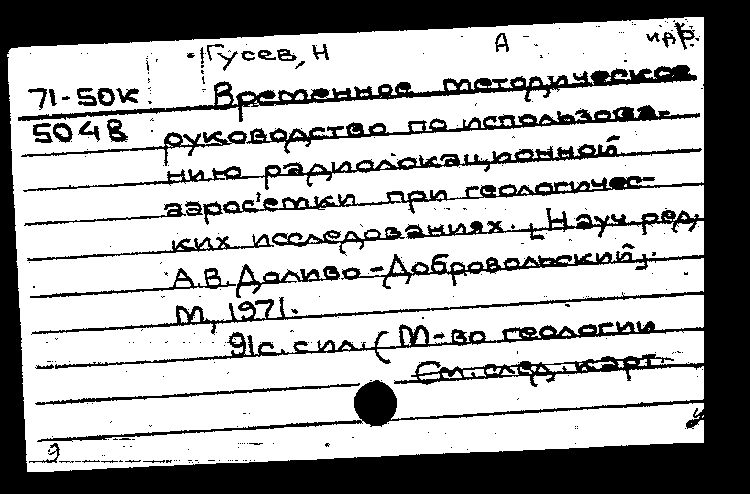 Гусев, Н А и др.
71-50К Временное методическое
5048 руководство по использова-
нию радиолокационной
аэросъемки при геологичес-
ких исследованиях. [Науч. ред.
А.В. Доливо-Добровольский].
М, 1971.
91с. с ил. (М-во геологии
См. след. карт.
9